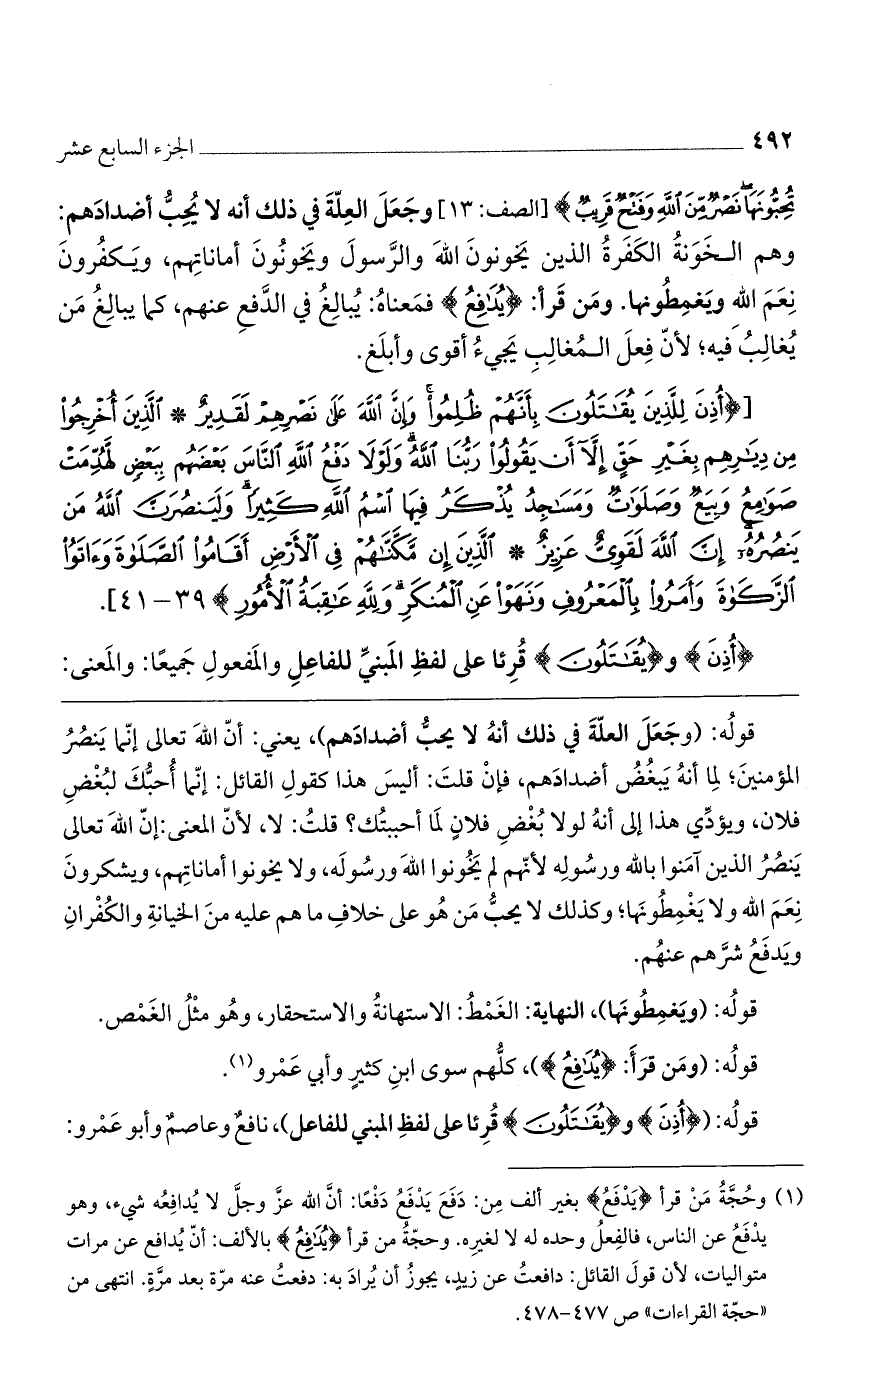 ٤٩٢ الجزء السابع عشر
تُحِبُّونَهَا نَصْرٌ مِّنَ ٱللَّهِ وَفَتْحٌ قَرِيبٌ ﴾ [الصف: ١٣] وجَعَلَ العِلّةَ في ذلك أنه لا يُحِبُّ أضدادَهم:
وهم الـخَوَنةُ الكَفَرةُ الذين يَخونونَ اللهَ والرَّسولَ ويَخونُونَ أماناتِهم، ويَـكفُرونَ
نِعَمَ الله ويَغمِطُونها. ومَن قَرأ: ﴿يُدَٰفِعُ ﴾ فمَعناهُ: يُبالِغُ في الدَّفعِ عنهم، كما يبالِغُ مَن
يُغالِبُ فيه؛ لأنّ فِعلَ الـمُغالِبِ يَجيءُ أقوى وأبلَغ.
[﴿أُذِنَ لِلَّذِينَ يُقَٰتَلُونَ بِأَنَّهُمْ ظُلِمُوا۟ ۚ وَإِنَّ ٱللَّهَ عَلَىٰ نَصْرِهِمْ لَقَدِيرٌ * ٱلَّذِينَ أُخْرِجُوا۟
مِن دِيَٰرِهِم بِغَيْرِ حَقٍّ إِلَّآ أَن يَقُولُوا۟ رَبُّنَا ٱللَّهُ ۗ وَلَوْلَا دَفْعُ ٱللَّهِ ٱلنَّاسَ بَعْضَهُم بِبَعْضٍ لَّهُدِّمَتْ
صَوَٰمِعُ وَبِيَعٌ وَصَلَوَٰتٌ وَمَسَٰجِدُ يُذْكَرُ فِيهَا ٱسْمُ ٱللَّهِ كَثِيرًا ۗ وَلَيَنصُرَنَّ ٱللَّهُ مَن
يَنصُرُهُۥٓ ۗ إِنَّ ٱللَّهَ لَقَوِىٌّ عَزِيزٌ * ٱلَّذِينَ إِن مَّكَّنَّٰهُمْ فِى ٱلْأَرْضِ أَقَامُوا۟ ٱلصَّلَوٰةَ وَءَاتَوُا۟
ٱلزَّكَوٰةَ وَأَمَرُوا۟ بِٱلْمَعْرُوفِ وَنَهَوْا۟ عَنِ ٱلْمُنكَرِ ۗ وَلِلَّهِ عَٰقِبَةُ ٱلْأُمُورِ ﴾ ٣٩ – ٤١].
﴿أُذِنَ ﴾ و﴿يُقَٰتَلُونَ ﴾ قُرِئا على لفظِ المَبنيِّ للفاعِلِ والمَفعولِ جَميعًا: والمَعنى:
قولُه: (وجَعَلَ العلّةَ في ذلك أنهُ لا يحبُّ أضدادَهم)، يعني: أنّ اللهَ تعالى إنّما يَنصُرُ
المؤمنينَ؛ لِما أنهُ يَبغُضُ أضدادَهم، فإنْ قلتَ: أليسَ هذا كقولِ القائل: إنّما أُحبُّكَ لبُغْضِ
فلان، ويؤدِّي هذا إلى أنهُ لولا بُغْضِ فلانٍ لَما أحببتُك؟ قلتُ: لا، لأنّ المعنى:إنّ اللهَ تعالى
يَنصُرُ الذين آمَنوا بالله ورسُولِه لأنّهم لم يَخُونوا اللهَ ورسُولَه، ولا يخونوا أماناتِهم، ويشكرونَ
نِعَمَ الله ولا يَغْمِطُونَها؛ وكذلك لا يحبُّ مَن هُو على خلافِ ما هم عليه منَ الخيانةِ والكُفْرانِ
ويَدفَعُ شرَّهم عنهُم.
قولُه: (ويَغمِطُونَها)، النهاية: الغَمْطُ: الاستهانةُ والاستحقار، وهُو مثْلُ الغَمْص.
قولُه: (ومَن قرَأَ: ﴿يُدَٰفِعُ ﴾)، كلُّهم سوى ابنِ كثيرٍ وأبي عَمْرو(١).
قولُه: (﴿أُذِنَ ﴾ و﴿يُقَٰتَلُونَ ﴾ قُرِئا على لفظِ المبني للفاعل)، نافعٌ وعاصمٌ وأبو عَمْرو:
(١) وحُجَّةُ مَنْ قرأ ﴿يَدْفَعُ﴾ بغير ألف مِن: دَفَعَ يَدْفَعُ دَفْعًا: أنَّ الله عزَّ وجلَّ لا يُدافِعُه شيء، وهو
يدْفَعُ عن الناس، فالفِعلُ وحده له لا لغيره. وحجّةُ من قرأ ﴿يُدَٰفِعُ ﴾ بالألف: أنّ يُدافع عن مرات
متواليات، لأن قولَ القائل: دافعتُ عن زيدٍ، يجوزُ أن يُرادَ به: دفعتُ عنه مرّة بعد مرَّةٍ. انتهى من
«حجّة القراءات» ص ٤٧٧–٤٧٨.